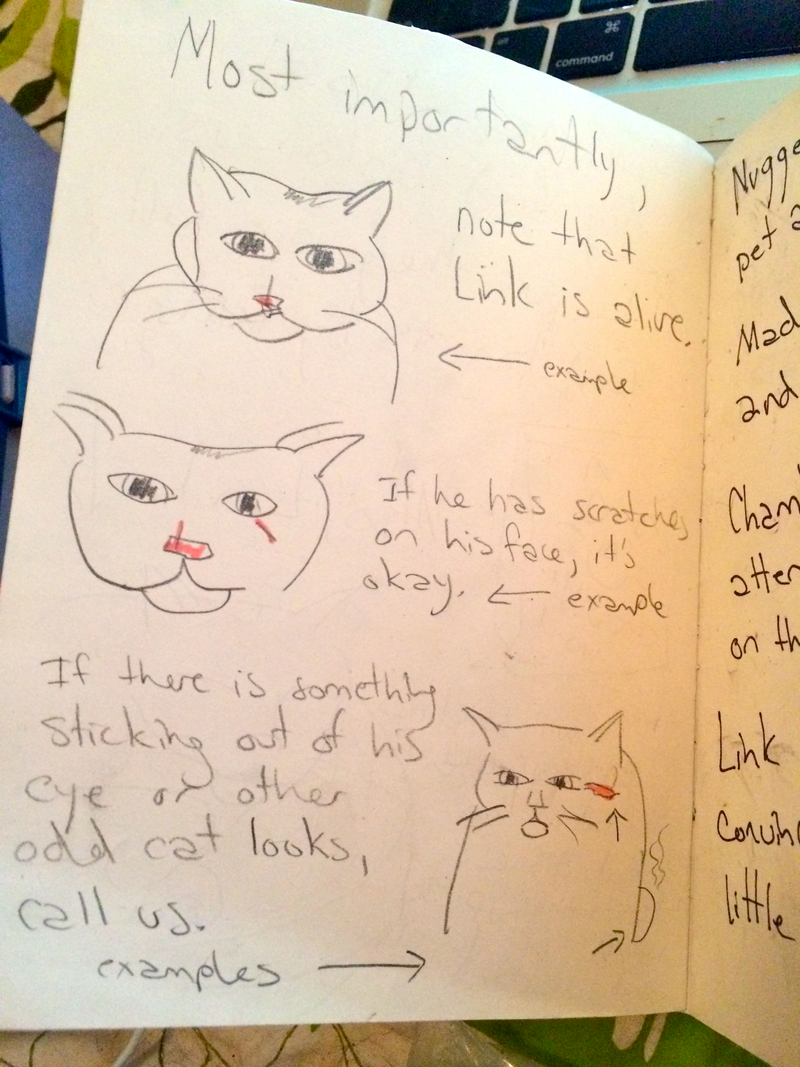 ⌘
command
Most importantly,
note that
Link is alive.
← example
If he has scratches
on his face, it's
okay. ← example
If there is something
sticking out of his
eye or other
odd cat looks,
call us.
examples →
Nugge
pet a
Mad
and
Cham
atten
on th
Link
Convin
little